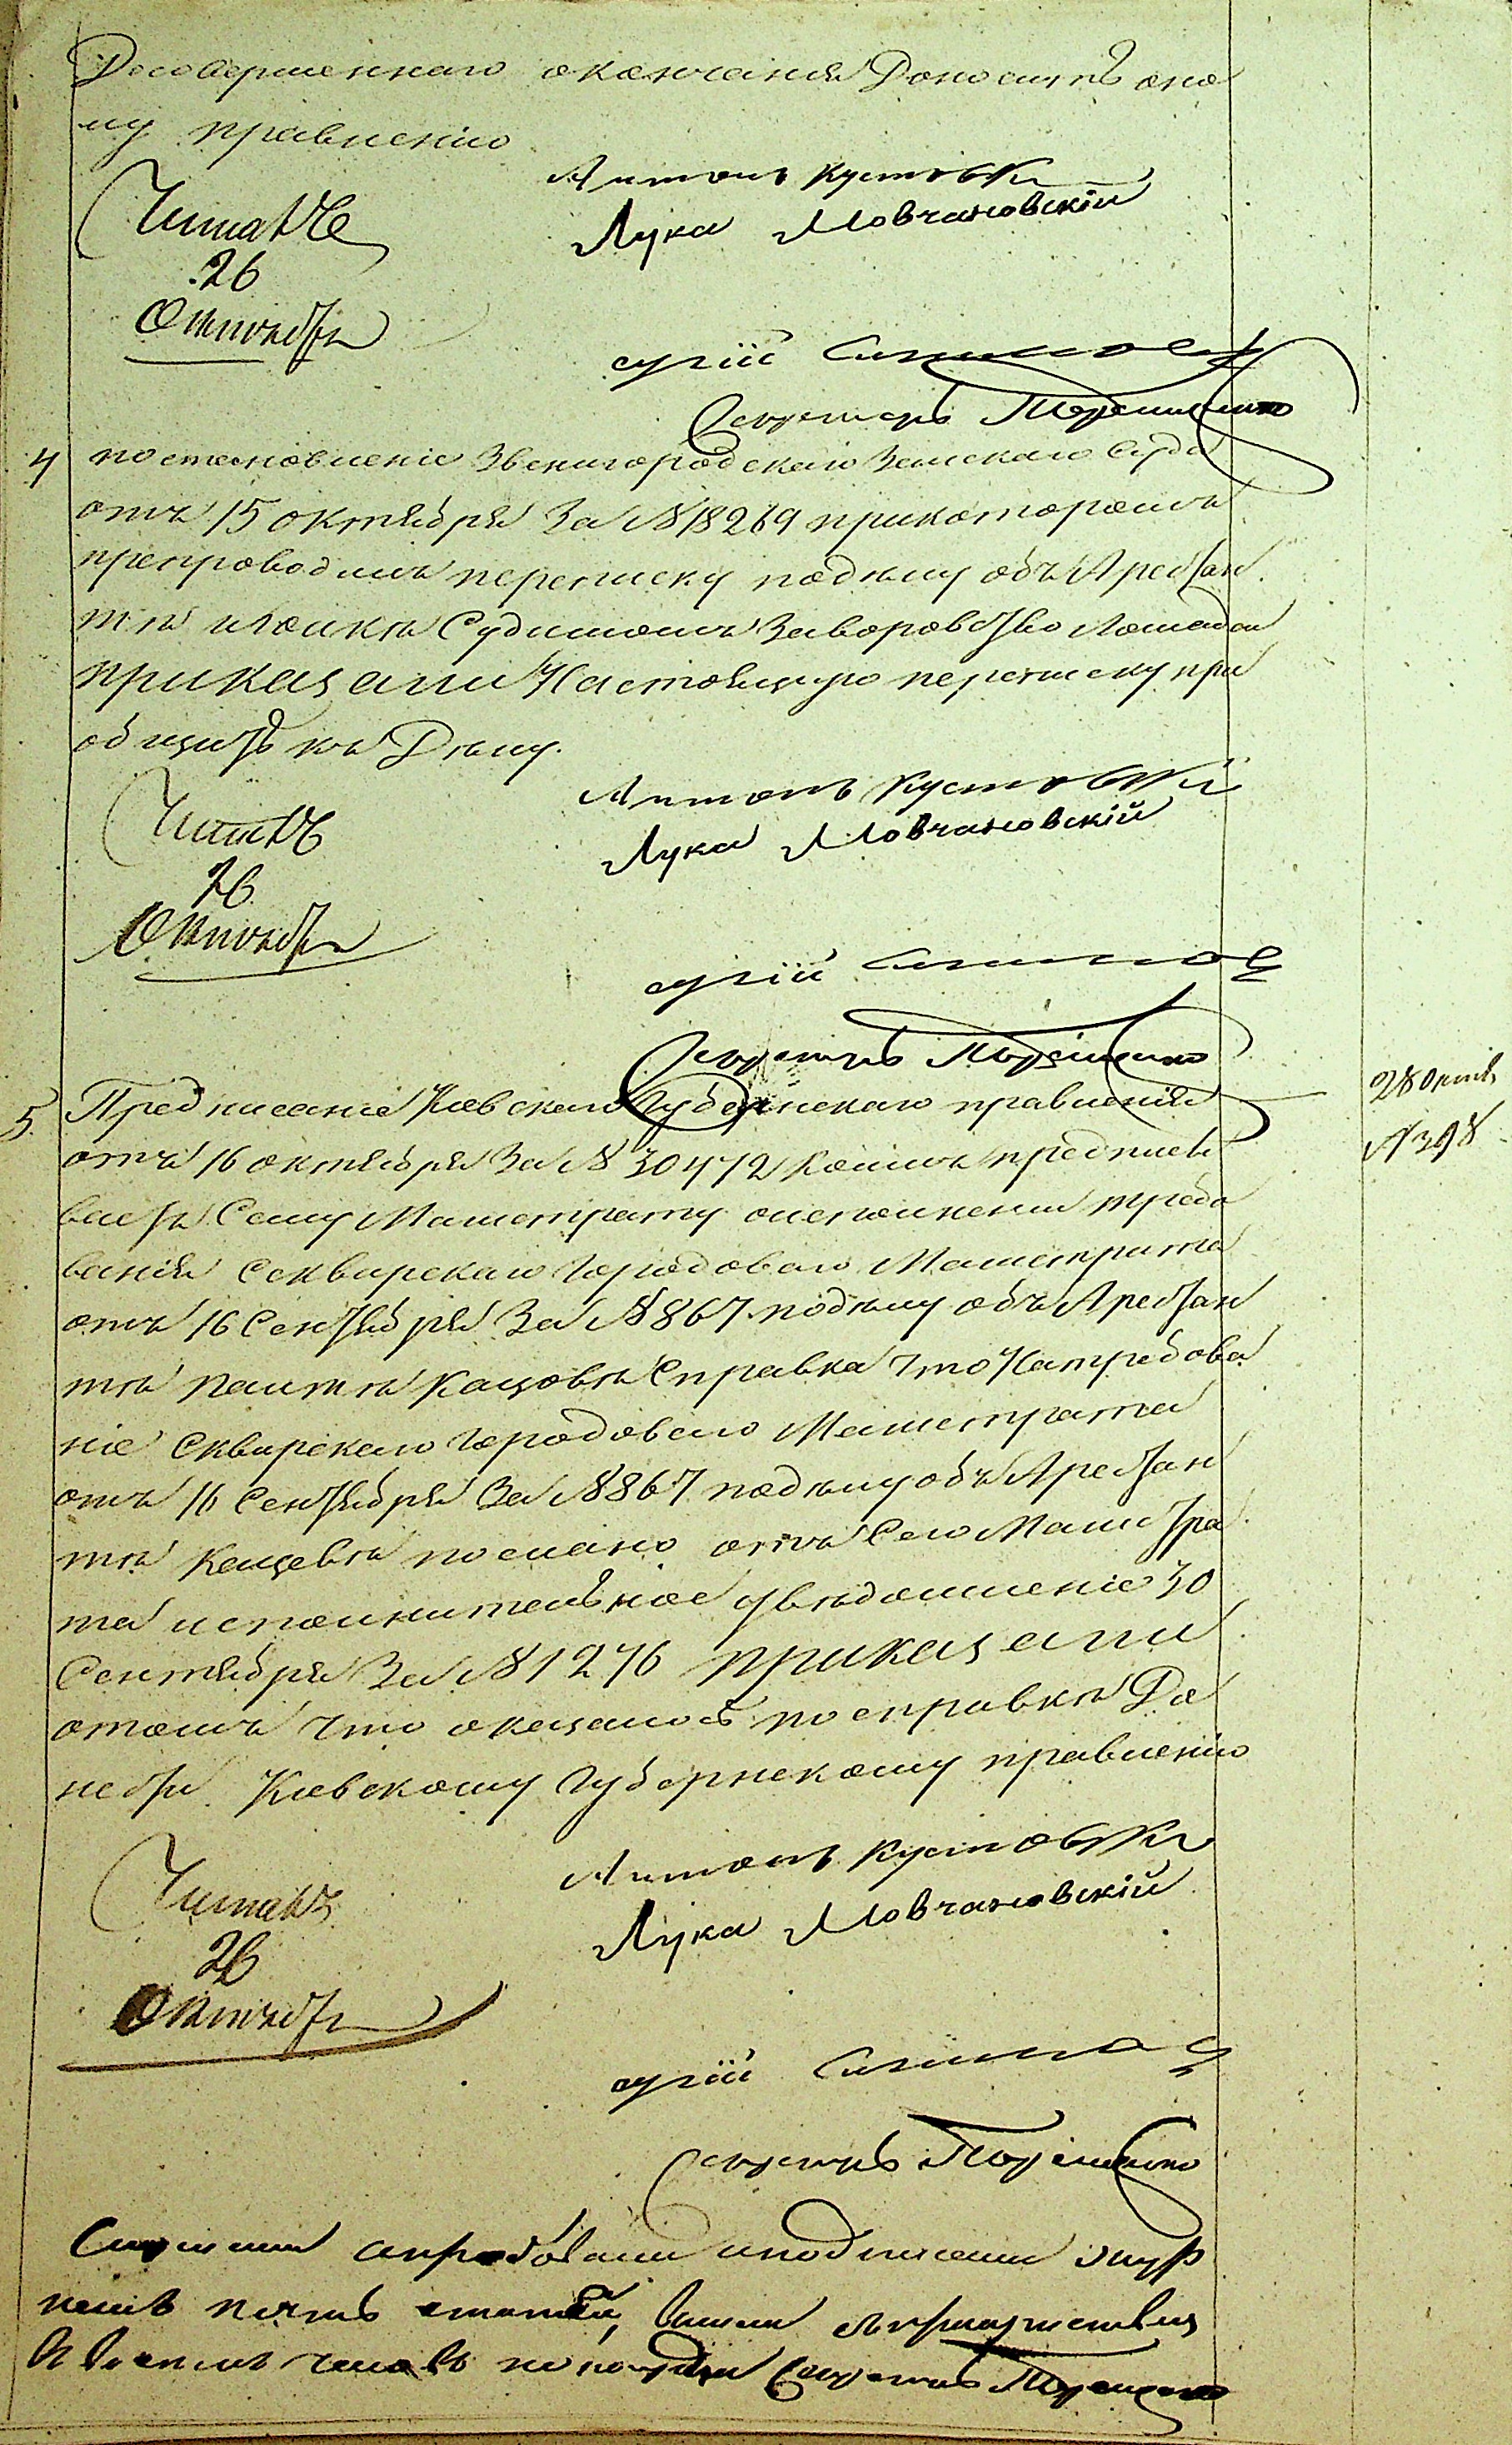 Досовершеннаго окончания Доносить оно
му правлению
Антонъ Кустовскі
Читалъ
Лука Мовчановскій
26
Октября
Секретарь Терещенко
4 постановление Звенигородскаго Земскаго Суда
отъ 15 октября За № 18269 прикоторомъ
препроводилъ переписку поделу объ Арестан
те Судимомъ Заворовство Лошадей
приказали Настоящую переписку при
общить къ Делу.
Антонъ Кустовскій
Читалъ
Лука Мовчановскій
26
Октября
Секретарь Терещенко
5. Предписание Киевскаго Губернскаго правления
28 Октяб
отъ 16 октября За № 30472 коимъ предписы
№ 398
ваетъ Сему Магистрату оисполнении требо
вания Сквирскаго Городоваго Магистрата
отъ 16 Сентября За № 867 поделу объ Арестан
те Кацове Справка что Натребова
ние Сквирскаго Городоваго Магистрата
отъ 16 Сентября За № 867 поделу объ Арестан
те Кацове послано отъ Сего Магистра
та исполнительное уведомление 30
Сентября За № 1276 приказали
отомъ что оказалось по справке До
нести Киевскому Губернскому правлению
Антонъ Кустовскі
Читалъ
Лука Мовчановскій
26
Октября
Секретарь Терещенко
Слушали апробовали иподписали журналъ
пять статей,
Секретарь Терещенко